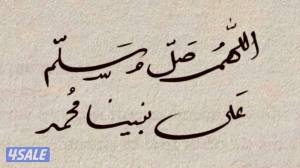 اللهم صل وسلم
على نبينا محمد
4SALE